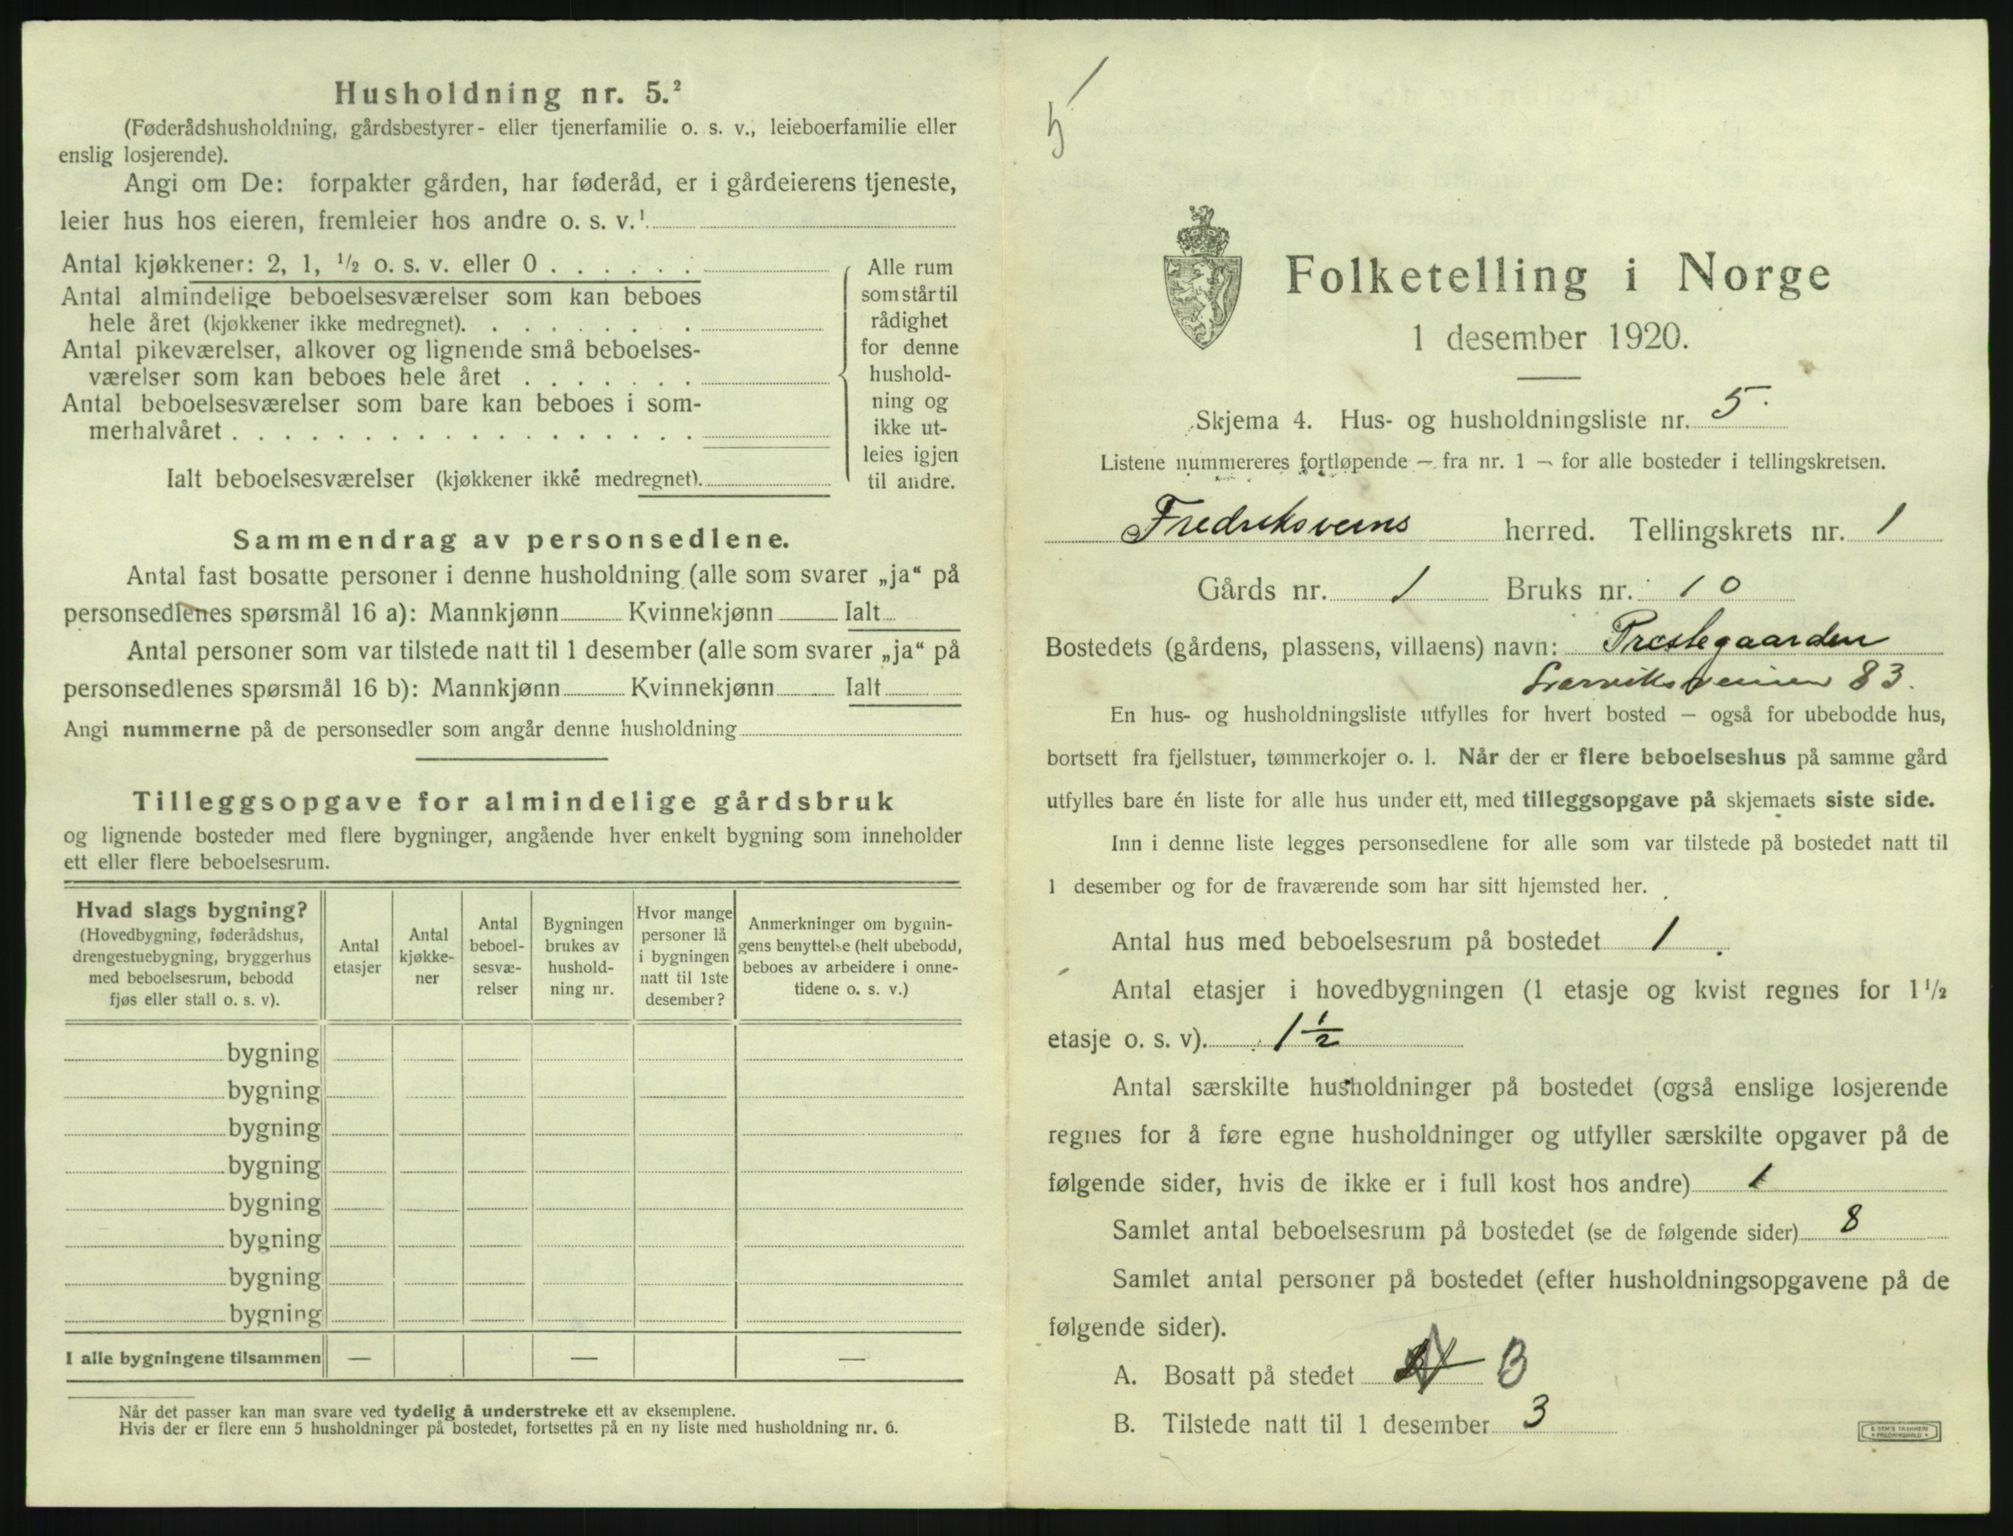 Husholdning nr. 5.²
(Føderådshusholdning, gårdsbestyrer- eller tjenerfamilie o. s. v., leieboerfamilie eller
enslig losjerende).
Angi om De: forpakter gården, har føderåd, er i gårdeierens tjeneste,
leier hus hos eieren, fremleier hos andre o. s. v.¹
Antal kjøkkener: 2, 1, ½ o. s. v. eller 0 . . . . . .
Antal almindelige beboelsesværelser som kan beboes
hele året (kjøkkener ikke medregnet). . . . . . . .
Antal pikeværelser, alkover og lignende små beboelses-
værelser som kan beboes hele året . . . . . . .
Antal beboelsesværelser som bare kan beboes i som-
merhalvåret . . . . . . . . . . . . . . . . . .
Ialt beboelsesværelser (kjøkkener ikke medregnet).
Alle rum
som står til
rådighet
for denne
hushold-
ning og
ikke ut-
leies igjen
til andre.
Sammendrag av personsedlene.
Antal fast bosatte personer i denne husholdning (alle som svarer „ja“ på
personsedlenes spørsmål 16 a): Mannkjønn Kvinnekjønn Ialt
Antal personer som var tilstede natt til 1 desember (alle som svarer „ja“ på
personsedlenes spørsmål 16 b): Mannkjønn Kvinnekjønn Ialt
Angi nummerne på de personsedler som angår denne husholdning
Tilleggsopgave for almindelige gårdsbruk
og lignende bosteder med flere bygninger, angående hver enkelt bygning som inneholder
ett eller flere beboelsesrum.
Hvad slags bygning?
(Hovedbygning, føderådshus,
drengestuebygning, bryggerhus
med beboelsesrum, bebodd
fjøs eller stall o. s. v).
Antal
etasjer
Antal
kjøkke-
ner
Antal
beboel-
sesvæ-
relser
Bygningen
brukes av
hushold-
ning nr.
Hvor mange
personer lå
i bygningen
natt til 1ste
desember?
Anmerkninger om bygnin-
gens benyttelse (helt ubebodd,
beboes av arbeidere i onne-
tidene o. s. v.)
bygning
bygning
bygning
bygning
bygning
bygning
bygning
bygning
I alle bygningene tilsammen — — —
Når det passer kan man svare ved tydelig å understreke ett av eksemplene.
Hvis der er flere enn 5 husholdninger på bostedet, fortsettes på en ny liste med husholdning nr. 6.
Folketelling i Norge
1 desember 1920.
Skjema 4. Hus- og husholdningsliste nr. 5.
Listene nummereres fortløpende — fra nr. 1 — for alle bosteder i tellingskretsen.
Fredriksverns herred. Tellingskrets nr. 1
Gårds nr. 1 Bruks nr. 10
Bostedets (gårdens, plassens, villaens) navn: Prestegaarden
Larviksveien 83.
En hus- og husholdningsliste utfylles for hvert bosted — også for ubebodde hus,
bortsett fra fjellstuer, tømmerkojer o. l. Når der er flere beboelseshus på samme gård
utfylles bare én liste for alle hus under ett, med tilleggsopgave på skjemaets siste side.
Inn i denne liste legges personsedlene for alle som var tilstede på bostedet natt til
1 desember og for de fraværende som har sitt hjemsted her.
Antal hus med beboelsesrum på bostedet 1
Antal etasjer i hovedbygningen (1 etasje og kvist regnes for 1½
etasje o. s. v). 1½
Antal særskilte husholdninger på bostedet (også enslige losjerende
regnes for å føre egne husholdninger og utfyller særskilte opgaver på de
følgende sider, hvis de ikke er i full kost hos andre) 1
Samlet antal beboelsesrum på bostedet (se de følgende sider) 8
Samlet antal personer på bostedet (efter husholdningsopgavene på de
følgende sider).
A. Bosatt på stedet
B. Tilstede natt til 1 desember 3